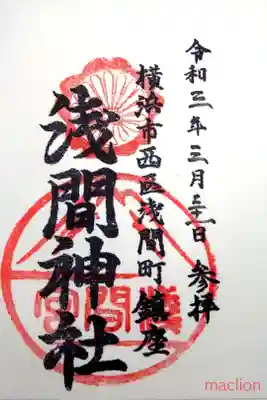 令和三年三月二十一日 参拝
横浜市西区浅間町鎮座
浅間神社
maclion